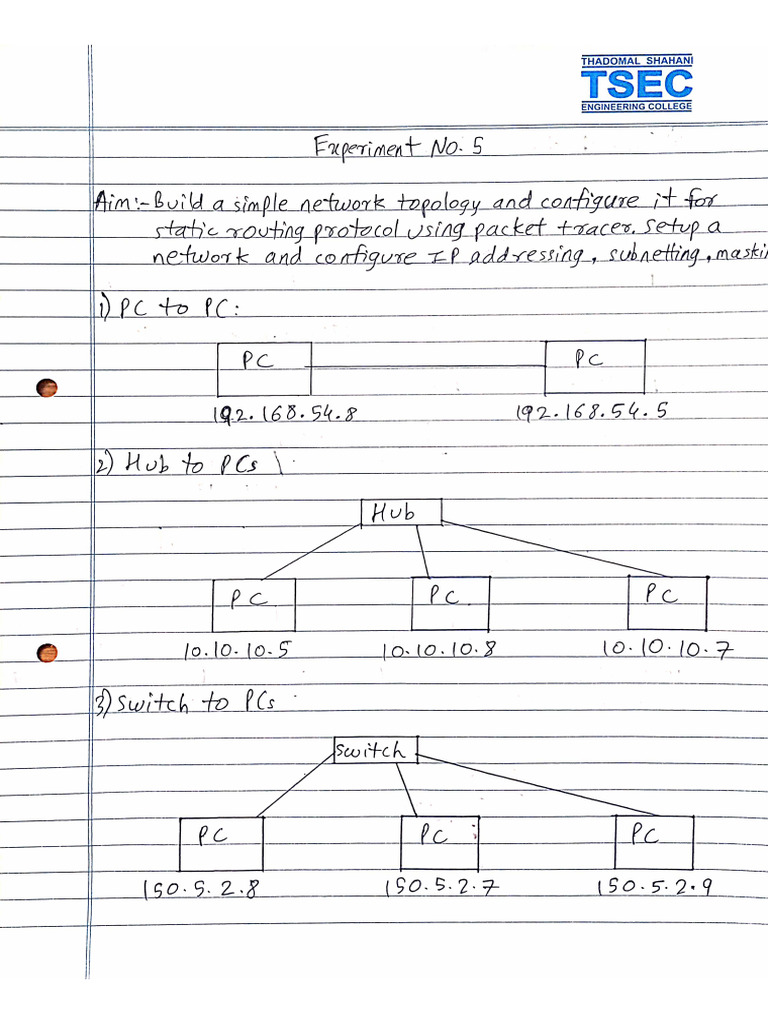 THADOMAL SHAHANI
TSEC
ENGINEERING COLLEGE
Experiment No. 5
Aim:- Build a simple network topology and configure it for
static routing protocol using packet tracer. Setup a
network and configure IP addressing, subnetting, maskin
1) PC to PC:
PC PC
192.168.54.8 192.168.54.5
2) Hub to PCs
Hub
PC PC PC
10.10.10.5 10.10.10.8 10.10.10.7
3) Switch to PCs
Switch
PC PC PC
150.5.2.8 150.5.2.7 150.5.2.9